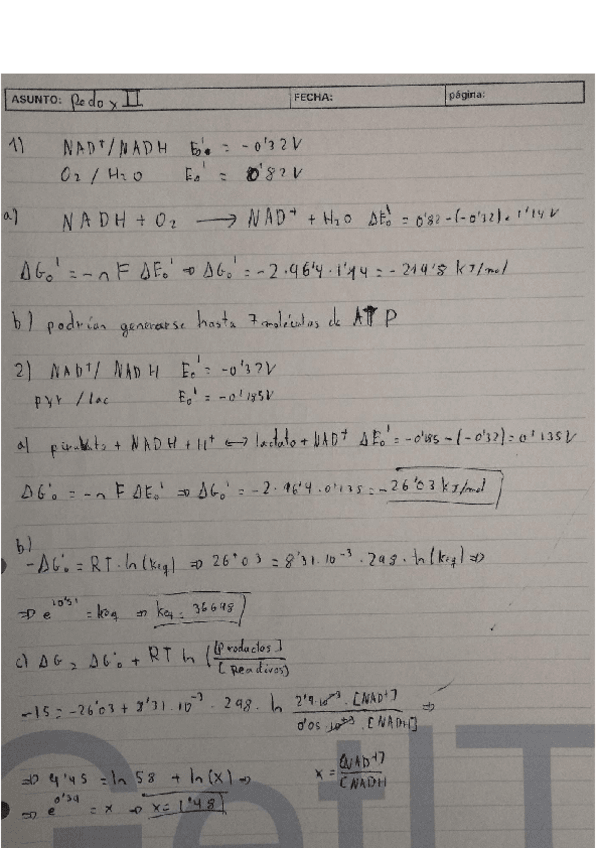 ASUNTO: Redox II FECHA: página:
1) NAD⁺/NADH E₀' = -0'32V
O₂ / H₂O E₀' = 0'82V
a) NADH + O₂ → NAD⁺ + H₂O ΔE₀' = 0'82 - (-0'32) = 1'14V
ΔG₀' = -n F ΔE₀' ⇒ ΔG₀' = -2·96'4·1'14 = -219'8 kJ/mol
b) podrían generarse hasta 7 moléculas de ATP
2) NAD⁺/ NADH E₀' = -0'32V
pyr / lac E₀' = -0'185V
a) piruvato + NADH + H⁺ ↔ lactato + NAD⁺ ΔE₀' = -0'185 - (-0'32) = 0'135V
ΔG₀' = -n F ΔE₀' ⇒ ΔG₀' = -2·96'4·0'135 = -26'03 kJ/mol
b)
-ΔG₀' = RT·ln(keq) ⇒ 26'03 = 8'31·10⁻³·298·ln(keq) ⇒
⇒ e^10'51 = keq ⇒ keq = 36698
c) ΔG = ΔG₀' + RT ln ([Productos]/[Reactivos])
-15 = -26'03 + 8'31·10⁻³·298·ln 2'9·10⁻³·[NAD⁺]/0'05·10⁻³·[NADH] ⇒
⇒ 4'45 = ln 58 + ln(x) ⇒ x = [NAD⁺]/[NADH
⇒ e^0'39 = x ⇒ x = 1'48